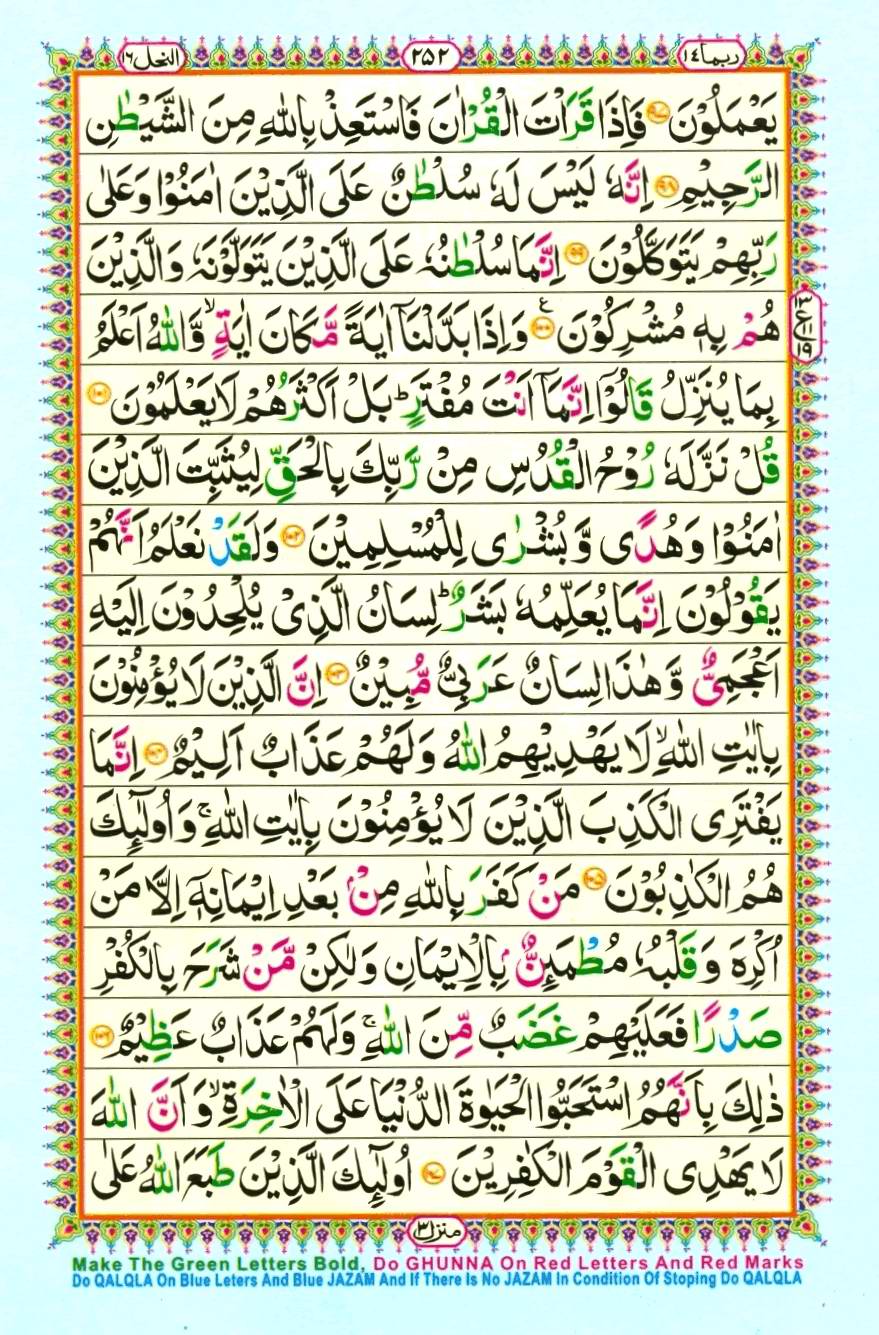 ربما ١٤
٢٥٢
النحل ١٦
يَعْمَلُوْنَ ﴿٩٧﴾ فَاِذَا قَرَاْتَ الْقُرْاٰنَ فَاسْتَعِذْ بِاللّٰهِ مِنَ الشَّيْطٰنِ
الرَّجِيْمِ ﴿٩٨﴾ اِنَّهٗ لَيْسَ لَهٗ سُلْطٰنٌ عَلَى الَّذِيْنَ اٰمَنُوْا وَعَلٰى
رَبِّهِمْ يَتَوَكَّلُوْنَ ﴿٩٩﴾ اِنَّمَا سُلْطٰنُهٗ عَلَى الَّذِيْنَ يَتَوَلَّوْنَهٗ وَالَّذِيْنَ
هُمْ بِهٖ مُشْرِكُوْنَ ﴿١٠٠﴾ ع وَاِذَا بَدَّلْنَاۤ اٰيَةً مَّكَانَ اٰيَةٍ ۙ وَّاللّٰهُ اَعْلَمُ
١٣ ع ١١ ١٩
بِمَا يُنَزِّلُ قَالُوْۤا اِنَّمَاۤ اَنْتَ مُفْتَرٍ ؕ بَلْ اَكْثَرُهُمْ لَا يَعْلَمُوْنَ ﴿١٠١﴾
قُلْ نَزَّلَهٗ رُوْحُ الْقُدُسِ مِنْ رَّبِّكَ بِالْحَقِّ لِيُثَبِّتَ الَّذِيْنَ
اٰمَنُوْا وَهُدًى وَّبُشْرٰى لِلْمُسْلِمِيْنَ ﴿١٠٢﴾ وَلَقَدْ نَعْلَمُ اَنَّهُمْ
يَقُوْلُوْنَ اِنَّمَا يُعَلِّمُهٗ بَشَرٌ ؕ لِسَانُ الَّذِيْ يُلْحِدُوْنَ اِلَيْهِ
اَعْجَمِيٌّ وَّهٰذَا لِسَانٌ عَرَبِيٌّ مُّبِيْنٌ ﴿١٠٣﴾ اِنَّ الَّذِيْنَ لَا يُؤْمِنُوْنَ
بِاٰيٰتِ اللّٰهِ ۙ لَا يَهْدِيْهِمُ اللّٰهُ وَلَهُمْ عَذَابٌ اَلِيْمٌ ﴿١٠٤﴾ اِنَّمَا
يَفْتَرِى الْكَذِبَ الَّذِيْنَ لَا يُؤْمِنُوْنَ بِاٰيٰتِ اللّٰهِ ۚ وَاُولٰٓئِكَ
هُمُ الْكٰذِبُوْنَ ﴿١٠٥﴾ مَنْ كَفَرَ بِاللّٰهِ مِنْۢ بَعْدِ اِيْمَانِهٖۤ اِلَّا مَنْ
اُكْرِهَ وَقَلْبُهٗ مُطْمَئِنٌّۢ بِالْاِيْمَانِ وَلٰكِنْ مَّنْ شَرَحَ بِالْكُفْرِ
صَدْرًا فَعَلَيْهِمْ غَضَبٌ مِّنَ اللّٰهِ ۚ وَلَهُمْ عَذَابٌ عَظِيْمٌ ﴿١٠٦﴾
ذٰلِكَ بِاَنَّهُمُ اسْتَحَبُّوا الْحَيٰوةَ الدُّنْيَا عَلَى الْاٰخِرَةِ ۙ وَاَنَّ اللّٰهَ
لَا يَهْدِى الْقَوْمَ الْكٰفِرِيْنَ ﴿١٠٧﴾ اُولٰٓئِكَ الَّذِيْنَ طَبَعَ اللّٰهُ عَلٰى
منزل ٣
Make The Green Letters Bold, Do GHUNNA On Red Letters And Red Marks
Do QALQLA On Blue Leters And Blue JAZAM And If There Is No JAZAM In Condition Of Stoping Do QALQLA